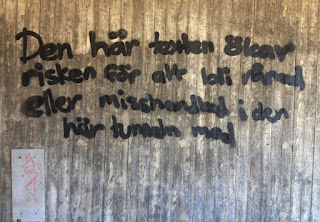 Den här texten ökar
risken för att bli rånad
eller misshandlad i den
här tunneln med